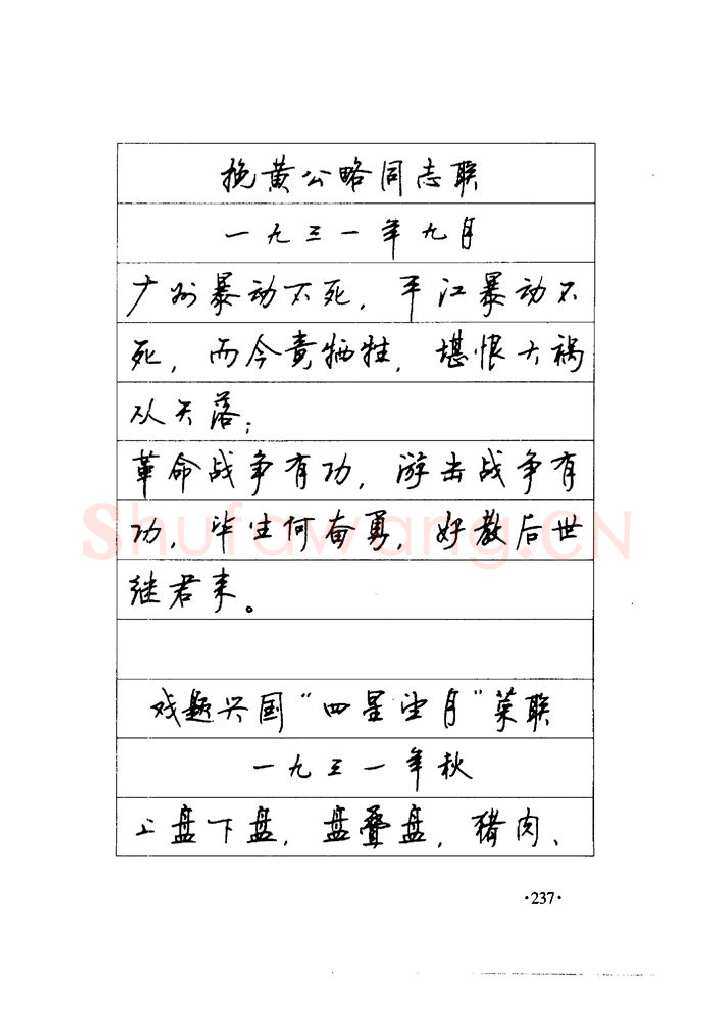 挽黄公略同志联
一九三一年九月
广州暴动不死，平江暴动不
死，而今责牺牲，堪恨大祸
从天落；
革命战争有功，游击战争有
功，毕生何奋勇，好教后世
继君来。
戏题兴国“四星望月”菜联
一九三一年秋
上盘下盘，盘叠盘，猪肉、
·237·
Shufawang.cn